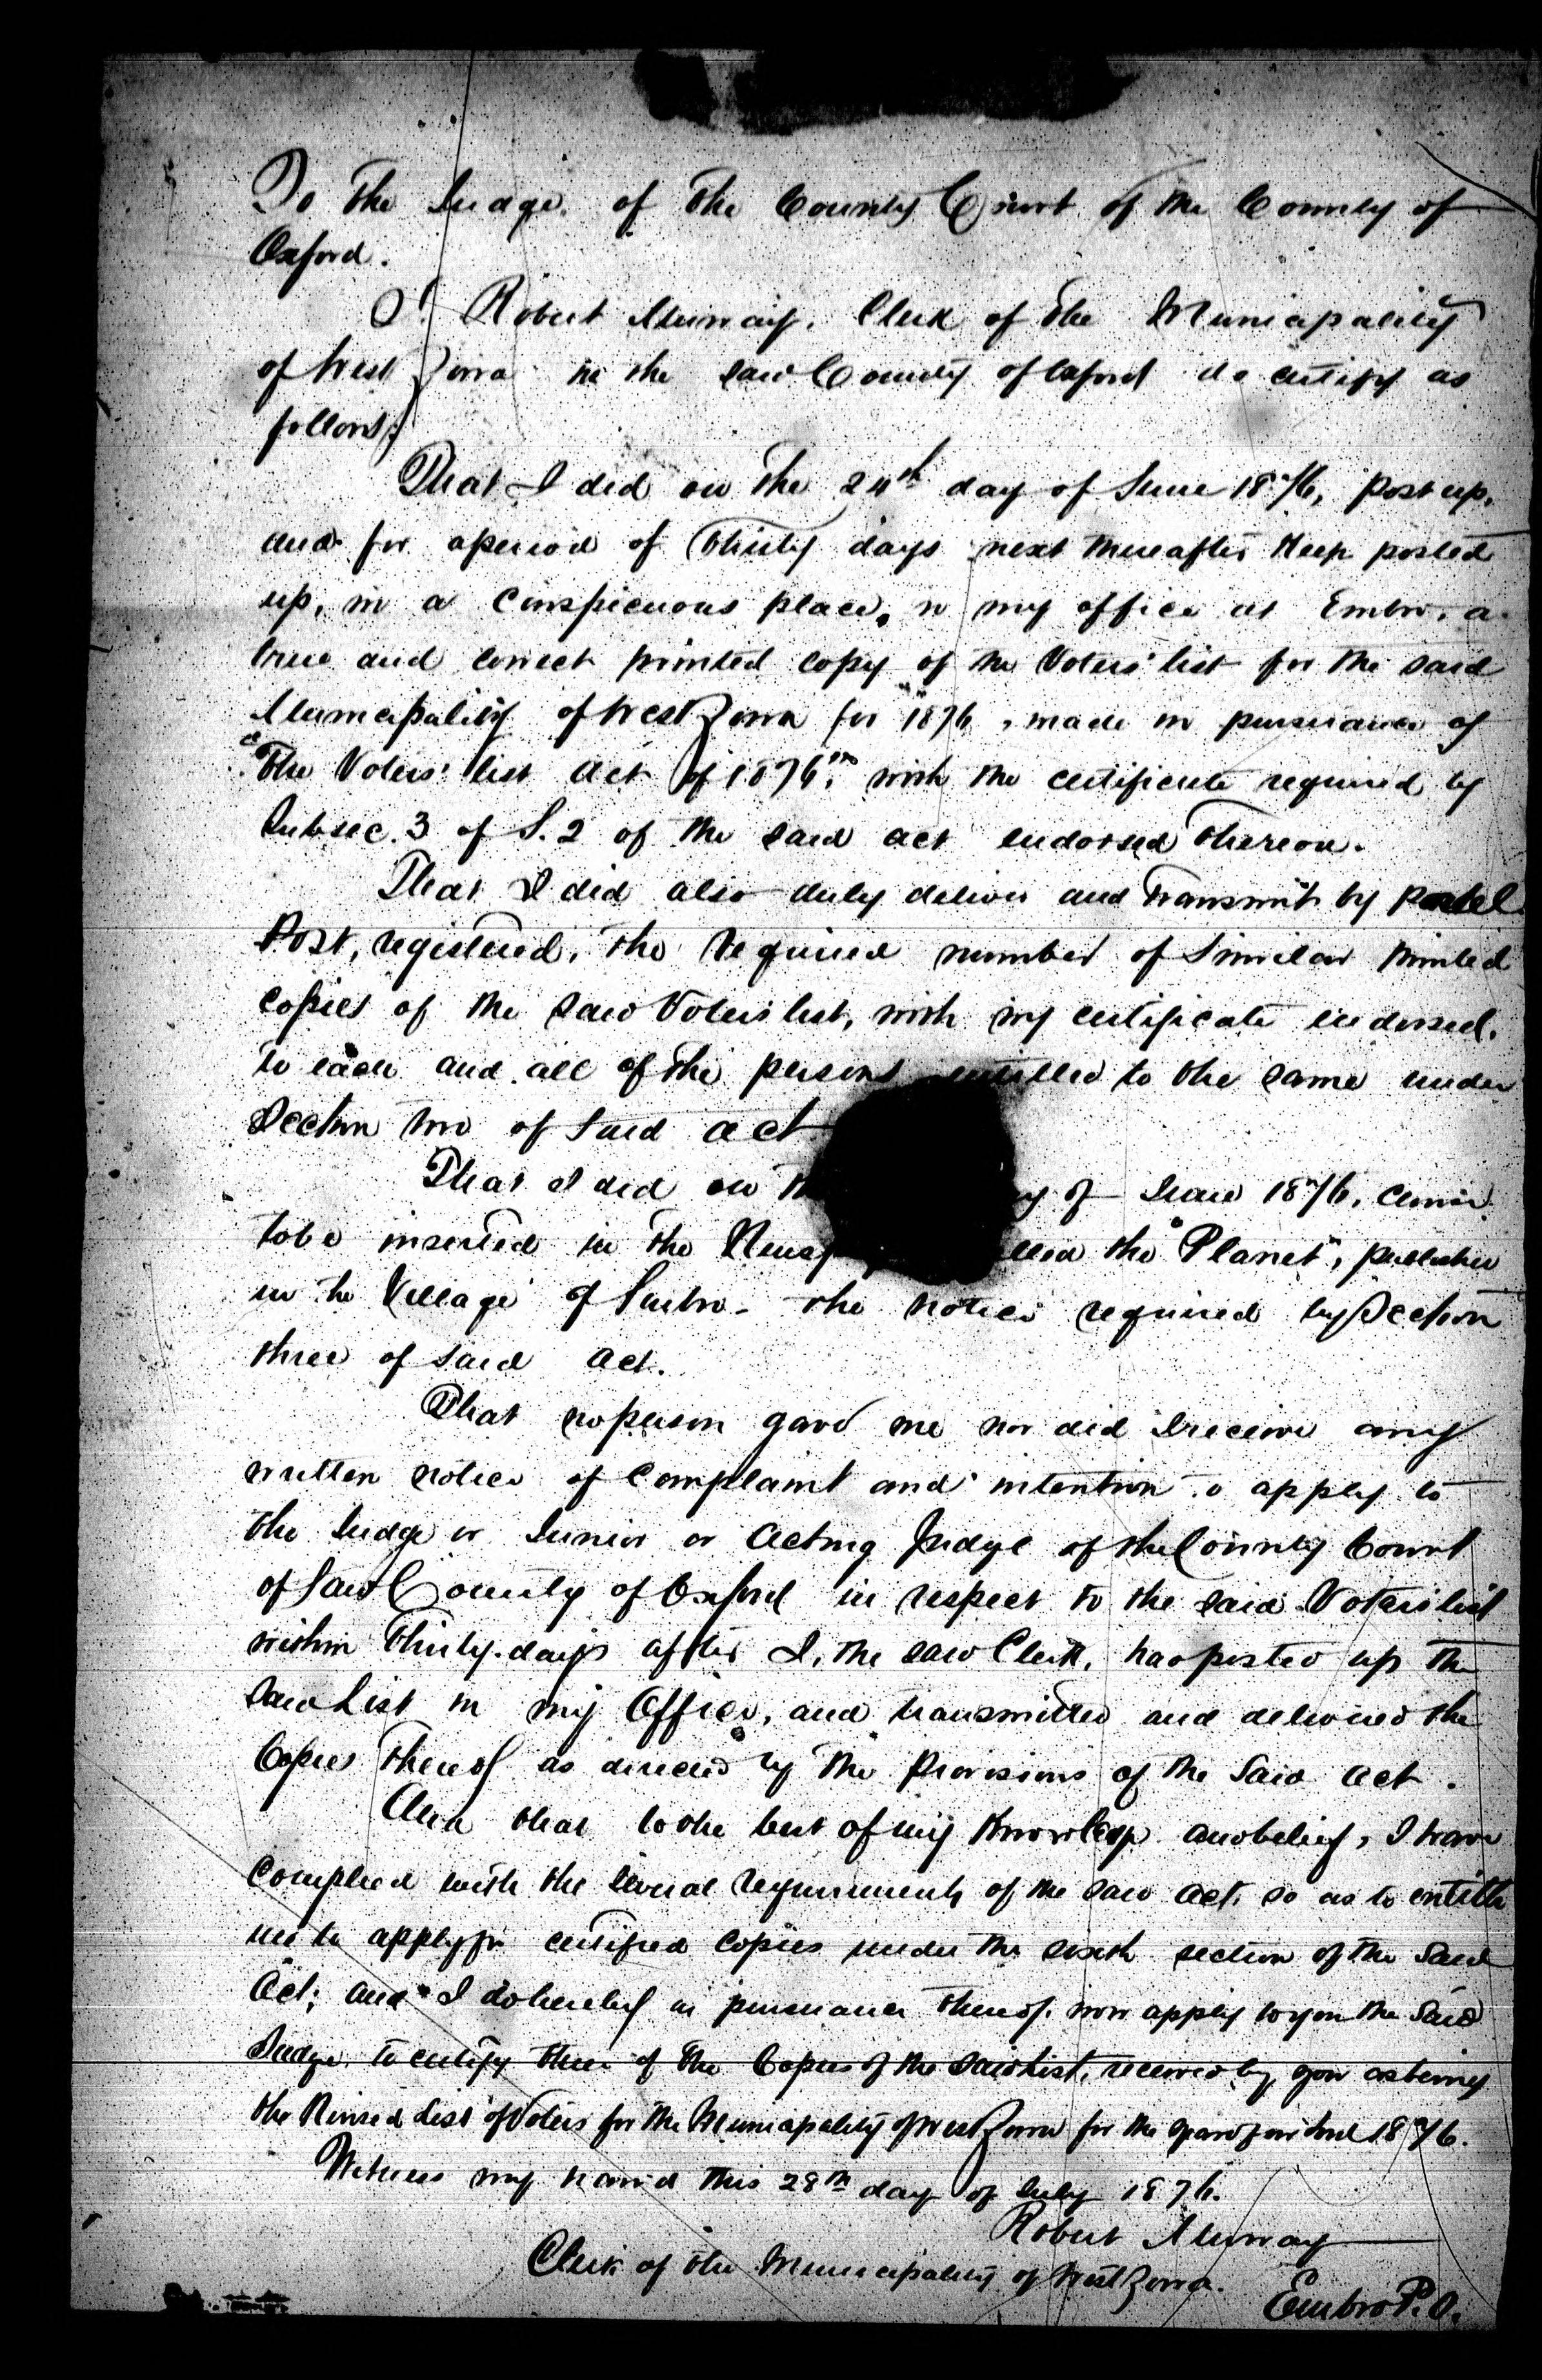 To the Judge of the County Court of the County of
Oxford.
I, Robert Murray, Clerk of the Municipality
of West Zorra in the said County of Oxford do certify as
follows;
That I did on the 24th day of June 1876, post up,
and for a period of Thirty days next thereafter Keep posted
up, in a Conspicuous place, in my office at Embro, a
true and correct printed copy of the Voters' list for the said
Municipality of West Zorra for 1876, made in pursuance of
"The Voters' list act of 1876", with the certificate required by
Subsec. 3 of S. 2 of the said act endorsed Thereon.
That I did also duly deliver and Transmit by
Post, registered, the required number of Similar Printed
copies of the said Voters list, with my certificate endorsed,
to each and all of the persons entitled to the same under
Section two of said act
That I did on y of June 1876, cause
to be inserted in the Newsp lled the "Planet", published
in the Village of Embro - the notice required by Section
three of said act.
That no person gave me nor did I receive any
written notice of Complaint and intention to apply to
the Judge or Junior or Acting Judge of the County Court
of said County of Oxford in respect to the said Voters list
within Thirty days after I, the said Clerk, had posted up the
said List in my Office, and transmitted and delivered the
Copies Thereof as directed by the Provisions of the Said Act.
And that to the best of my Knowledge and belief, I have
complied with the several requirements of the said act, so as to entitle
me to apply for certified copies under the sixth section of the Said
Act; and I do hereby in pursuance thereof, now apply to you the Said
Judge, to certify three of the Copies of the said List, received by you as being
the Revised List of Voters for the Municipality of West Zorra for the year 1876.
Witness my hand this 28th day of July 1876.
Robert Murray
Clerk of the Municipality of West Zorra.
Embro P.O.